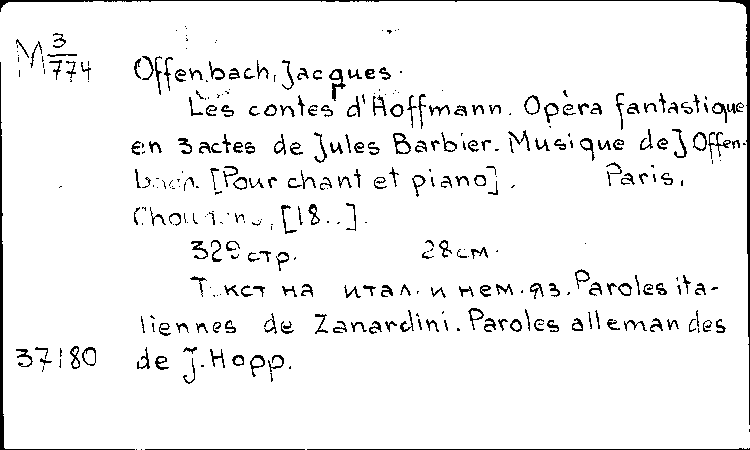 M 3/774
Offenbach, Jacques.
Les contes d'Hoffmann. Opèra fantastique
en 3 actes de Jules Barbier. Musique de J Offen-
bach. [Pour chant et piano]. Paris,
[18..].
329 стр. 28 см.
Текст на итал. и нем. яз. Paroles ita-
liennes de Zanardini. Paroles allemandes
37180 de J. Hopp.